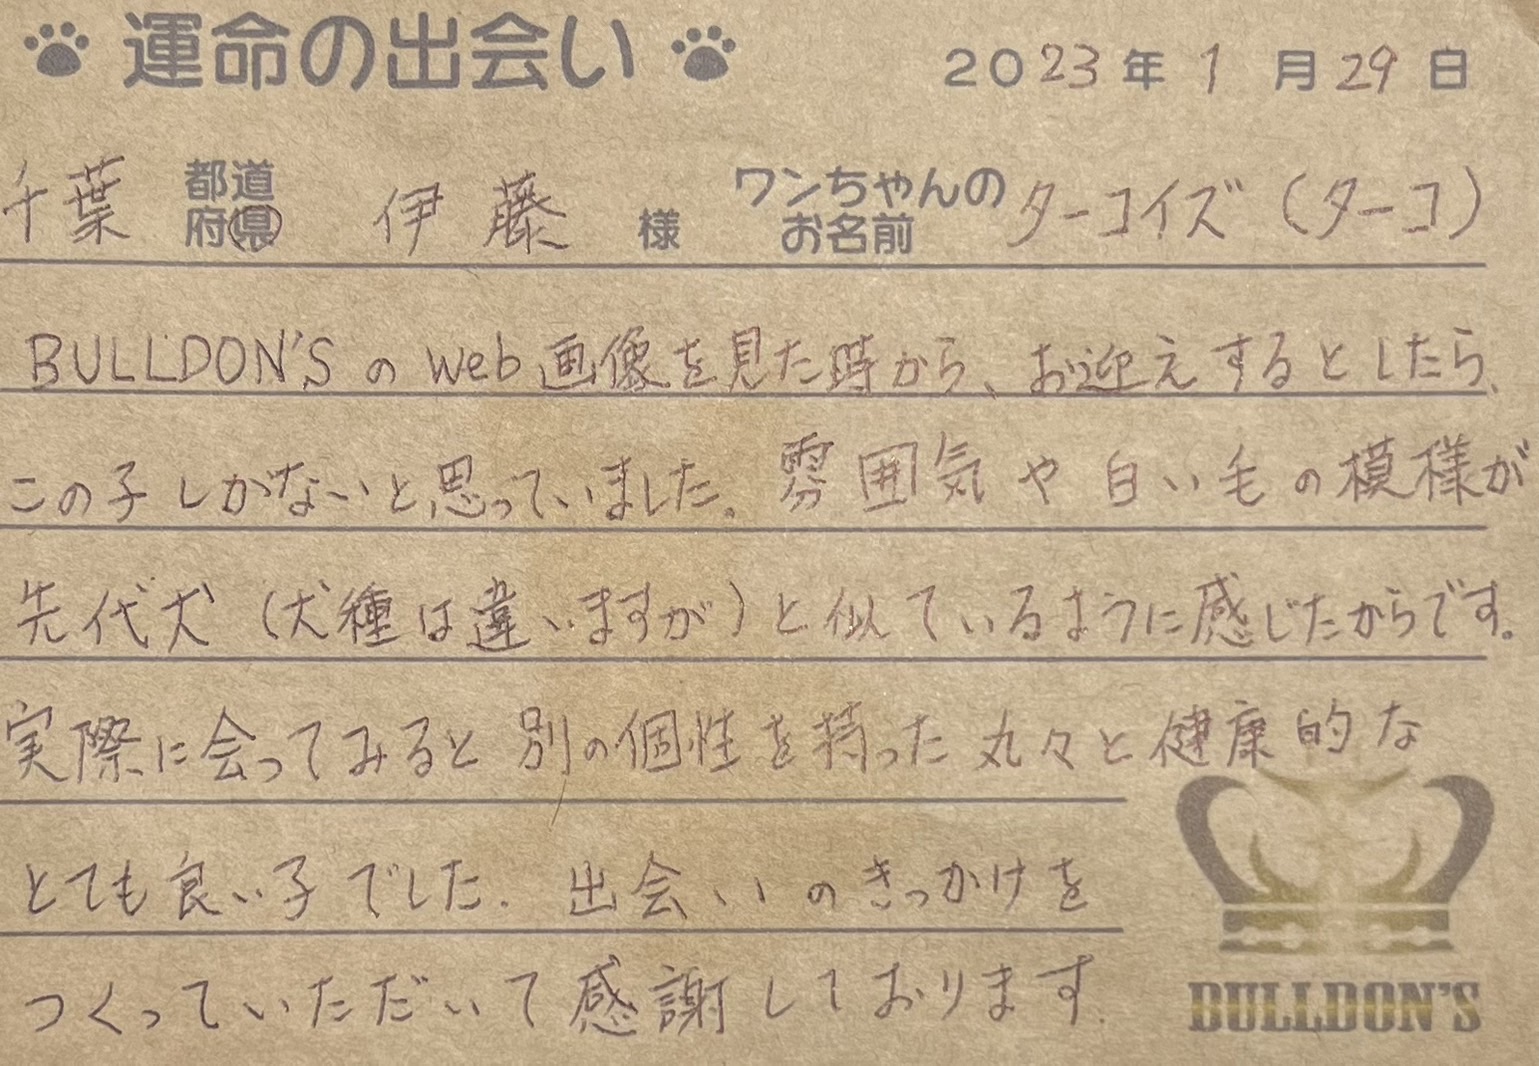 運命の出会い 2023年1月29日
千葉 都道府県 伊藤 様 ワンちゃんのお名前 ターコイズ(ターコ)
BULLDON'Sのweb画像を見た時から、お迎えするとしたら、
この子しかないと思っていました。雰囲気や白い毛の模様が
先代犬(犬種は違いますが)と似ているように感じたからです。
実際に会ってみると別の個性を持った丸々と健康的な
とても良い子でした. 出会いのきっかけを
つくっていただいて感謝しております.
BULLDON'S